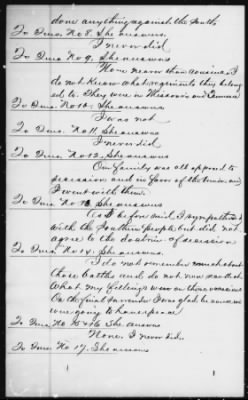 done anything against the South
To Ques. No 8. She answers
I never did
To Ques. No 9. She answers
None nearer than cousins. I
do not know what regiments they belong
ed to. They were in Missouri and
To Ques. No 10. She answers
I was not
To Ques. No 11. She answers
I never did
To Ques. No 12. She answers
Our family was all opposed to
secession and in favor of the Union and
I went with them.
To Ques. No 13. She answers
As I before said I sympathized
with the Southern people but did not
agree to the doctrine of secession
To Ques. No 14. She answers
I do not remember much about
those battles and do not now know that
What my feelings were on those occasions
On the final surrender I was glad because
we were going to have peace
To Ques. No 15 & 16 She answers
None. I never did.
To Ques. No 17. She answers